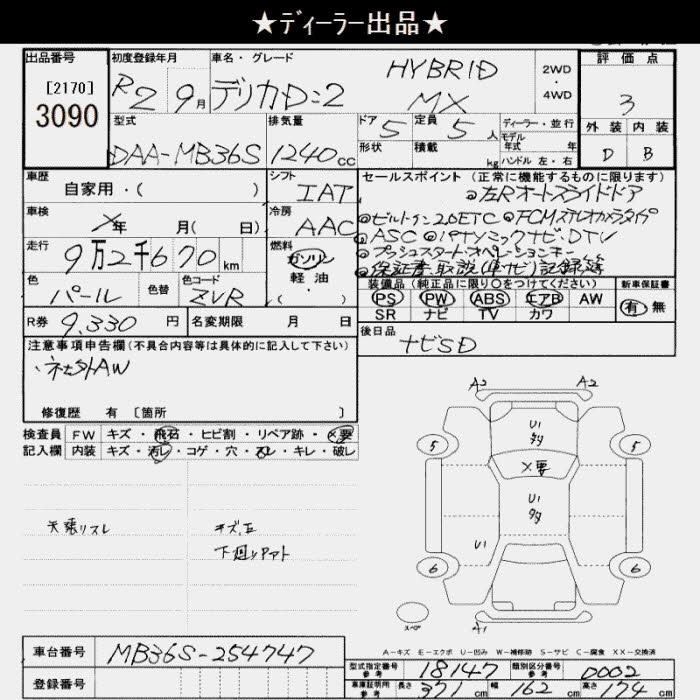 ★ディーラー出品★
出品番号
[2170]
3090
初度登録年月
R2 9月
車名・グレード
デリカD:2
HYBRID
MX
2WD
・
4WD
評価点
3
外装 内装
D B
型式
DAA-MB36S
排気量
1240cc
ドア 5
定員 5人
ディーラー・並行
モデル
年式 年
形状
積載 kg
ハンドル 左・右
車歴
自家用・( )
シフト
IAT
セールスポイント (正常に機能するものに限ります)
◎左Rオートスライドドア
◎ビルトイン2.0ETC ◎FCMステレオカメラタイプ
◎ASC ◎19TVミックナビ・DTV
◎プッシュスタートオペレーションキー
◎保証書、取説(車、ナビ)記録簿
車検
×年 月( 日)
冷房
AAC
走行
9万2千670km
燃料
ガソリン
軽油
・( )
色
パール
色替
色コード
ZVR
装備品 (純正品に限り○をつけてください)
PS PW ABS エアB AW
SR ナビ TV カワ
新車保証書
有・無
R券 9,330円
名変期限 月 日
後日品
ナビSD
注意事項申告欄(不具合内容等は具体的に記入して下さい)
・社外AW
修復歴 有 〔箇所 〕
検査員 FW キズ・飛石・ヒビ割・リペア跡・×要
記入欄 内装 キズ・汚レ・コゲ・穴・スレ・キレ・破レ
天張リスレ
キズ、凹
下廻りサビ
A2 A2
U1
多
5 5
×要
U1
多
U1
6 6
スペア
A1
A-キズ E-エクボ U-凹み W-補修跡 S-サビ C-腐食 XX-交換済
車台番号 MB36S-254747
登録番号
型式指定番号
参考
18147
類別区分番号
参考
0002
車庫証明用
参考
長さ 371cm 幅 162cm 高さ 174cm